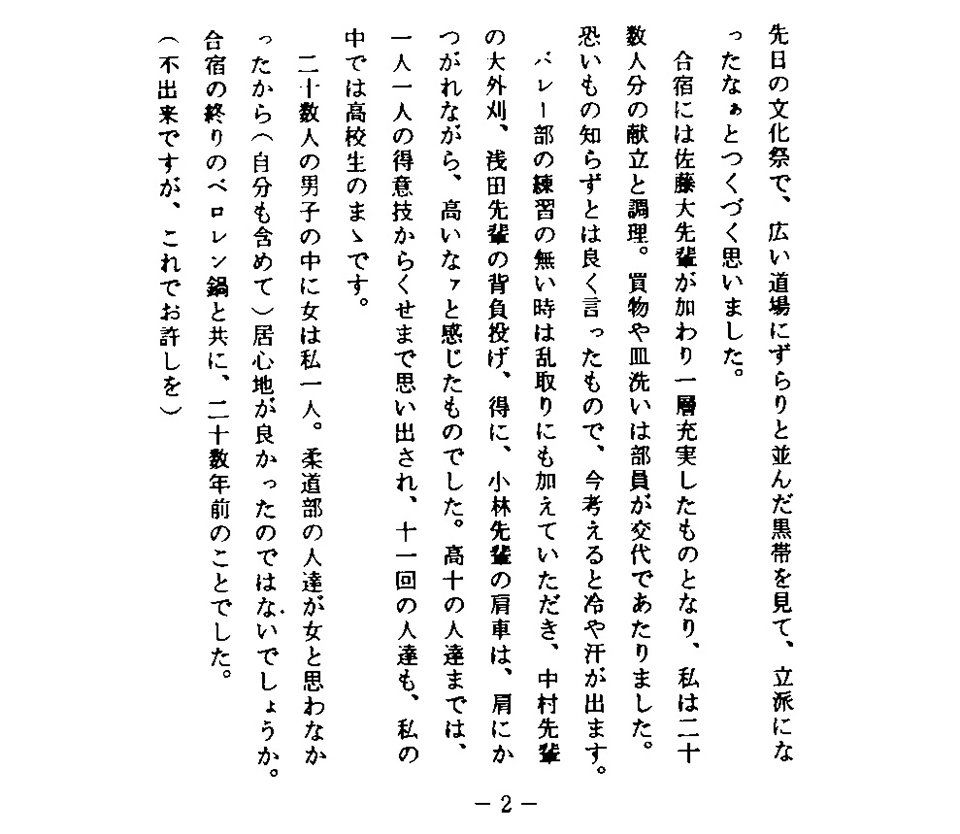 先日の文化祭で、広い道場にずらりと並んだ黒帯を見て、立派にな
ったなぁとつくづく思いました。
合宿には佐藤大先輩が加わり一層充実したものとなり、私は二十
数人分の献立と調理。買物や皿洗いは部員が交代であたりました。
恐いもの知らずとは良く言ったもので、今考えると冷や汗が出ます。
バレー部の練習の無い時は乱取りにも加えていただき、中村先輩
の大外刈、浅田先輩の背負投げ、得に、小林先輩の肩車は、肩にか
つがれながら、高いなァと感じたものでした。高十の人達までは、
一人一人の得意技からくせまで思い出され、十一回の人達も、私の
中では高校生のまゝです。
二十数人の男子の中に女は私一人。柔道部の人達が女と思わなか
ったから（自分も含めて）居心地が良かったのではないでしょうか。
合宿の終りのベロレン鍋と共に、二十数年前のことでした。
（不出来ですが、これでお許しを）
－2－